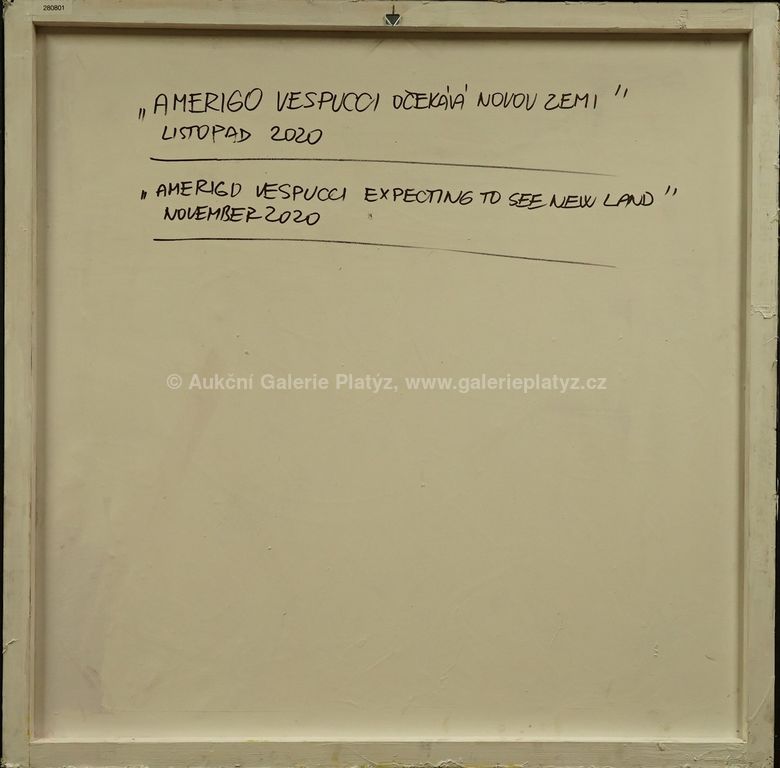 280801
„AMERIGO VESPUCCI OČEKÁVÁ NOVOU ZEMI"
LISTOPAD 2020
„AMERIGO VESPUCCI EXPECTING TO SEE NEW LAND"
NOVEMBER 2020
© Aukční Galerie Platýz, www.galerieplatyz.cz